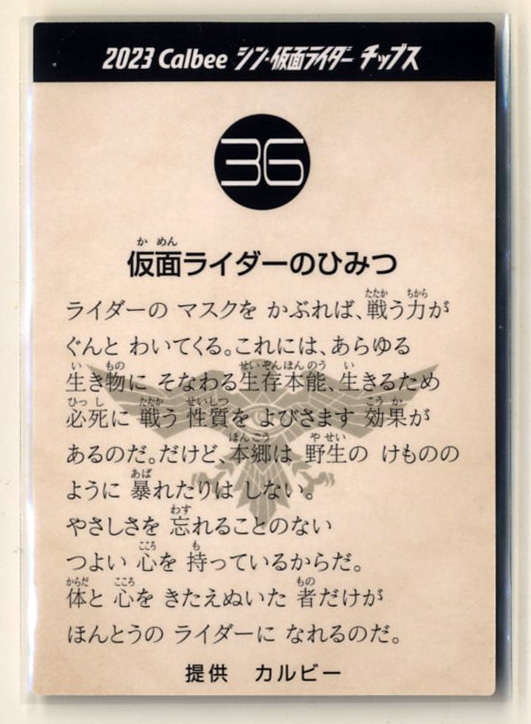 2023 Calbee シン・仮面ライダー チップス
36
仮面ライダーのひみつ
ライダーの マスクを かぶれば、戦う力が
ぐんと わいてくる。これには、あらゆる
生き物に そなわる生存本能、生きるため
必死に 戦う 性質を よびさます 効果が
あるのだ。だけど、本郷は 野生の けものの
ように 暴れたりは しない。
やさしさを 忘れることのない
つよい 心を 持っているからだ。
体と 心を きたえぬいた 者だけが
ほんとうの ライダーに なれるのだ。
提供 カルビー